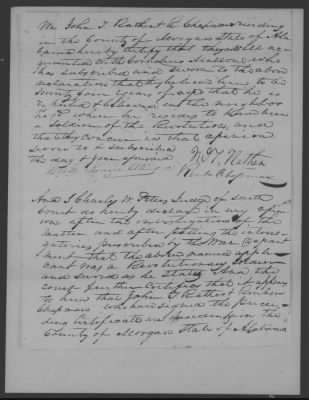 We John T. Rather & Chapman residing
in the County of Morgan State of Ala
bama hereby certify that they well ac
quainted with Cornelius Slasson who
has subscribed and sworn to the above
declaration that they believe him to be
Seventy four years of age that he is
reputed & believed in the neighbor
hood where he resides to have been
a Soldier of the Revolution, and
that they concur in that opinion
Sworn to & Subscribed
the day & year aforesaid
J. T. Rather
Chapman
And I Charles W. Peters Judge of said
Court do hereby declare it my opin
ion after the investigation of the
matter and after putting the interro
gatories prescribed by the War Depart
ment that the above named appli
cant was a Revolutionary Soldier
and served as he States And the
court further certifies that it appears
to him that John T. Rather
Chapman who have signed the Prece
ding Certificate are residents in the
County of Morgan State of Alabama